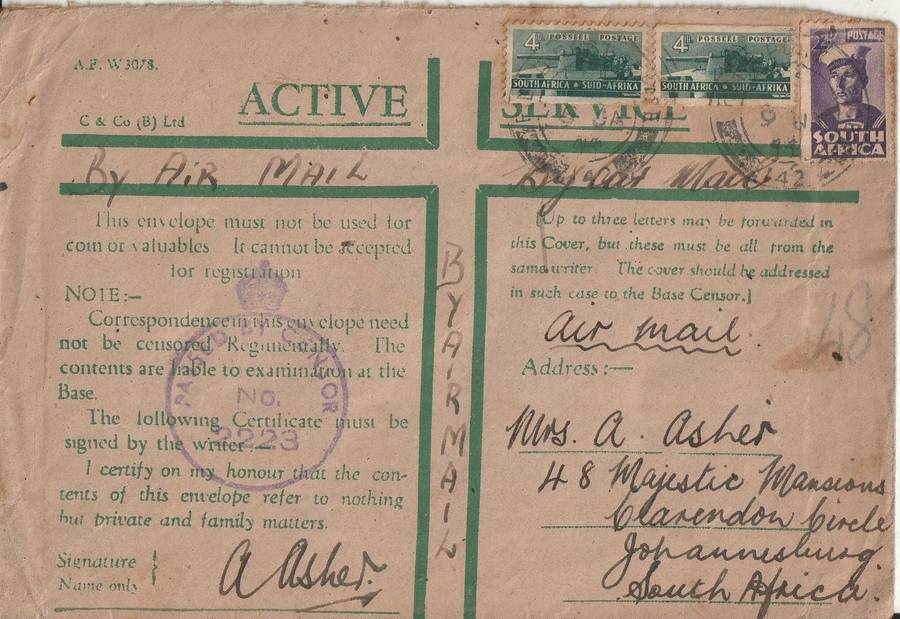 A.F. W3078.
ACTIVE SERVICE
C & Co (B) Ltd
4D POSSEEL POSTAGE
SOUTH AFRICA · SUID-AFRIKA
4D POSSEEL POSTAGE
SOUTH AFRICA · SUID-AFRIKA
POSTAGE
SOUTH AFRICA
42
By AIR MAIL
By air Mail
This envelope must not be used for
coin or valuables It cannot be accepted
for registration
NOTE:—
Correspondence in this envelope need
not be censored Regimentally. The
contents are liable to examination at the
Base.
The following Certificate must be
signed by the writer:—
I certify on my honour that the con-
tents of this envelope refer to nothing
but private and family matters.
Signature
Name only
A Asher.
PASSED BY CENSOR
NO.
2223
BY AIR MAIL
[Up to three letters may be forwarded in
this Cover, but these must be all from the
same writer. The cover should be addressed
in such case to the Base Censor.]
air mail.
48
Address:—
Mrs. A. Asher
48 Majestic Mansions
Clarendon Circle
Johannesburg.
South Africa.